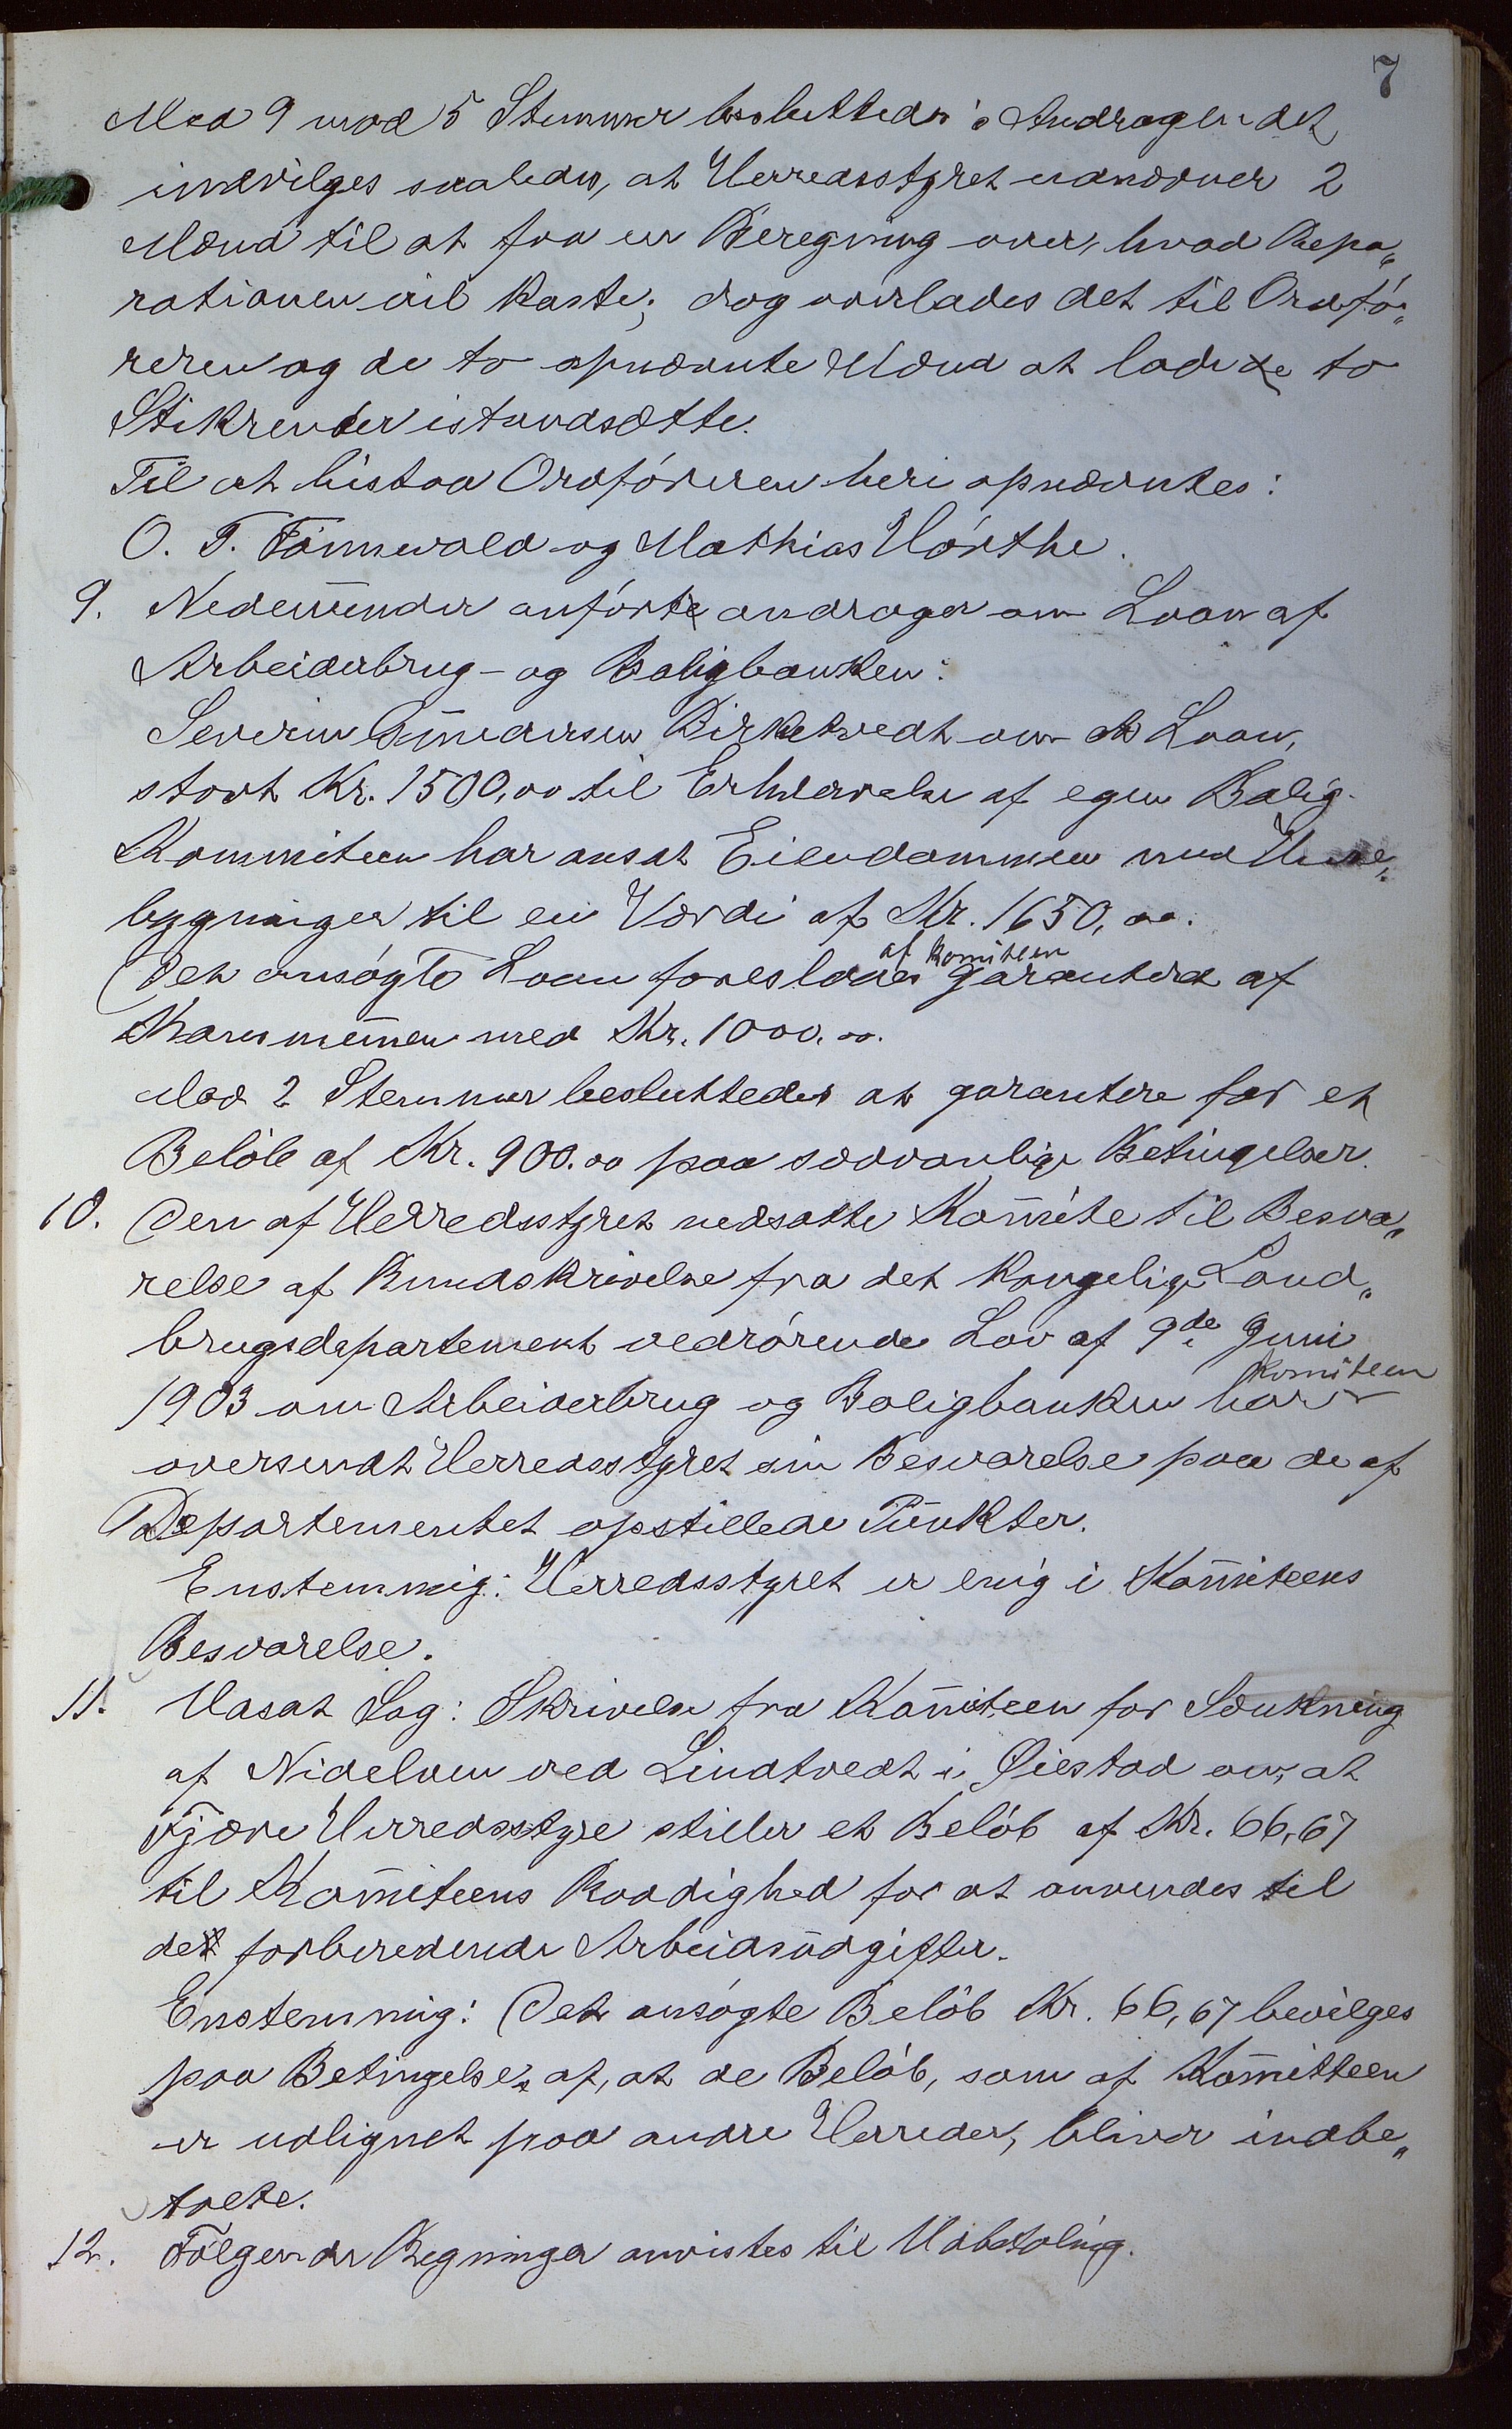 7
Med 9 mod 5 Stemmer besluttedes: Andragendet
indvilges saaledes, at Herredsstyret udnævner 2
Mænd til at faa en Beregning over, hvad Repa„
rationen vil koste; dog overlades det til Ordfó„
reren og de to opnævnte Mænd at lade de to
Stikrender istandsætte.
Til at bistaa Ordfóreren heri opnævntes:
O. T. Fónnevold og Mathias Hórthe.
9. Nedenunder anfórte andrager om Laan af
Arbeiderbrug- og Boligbanken:
Severin Gundersen Birketvedt om et Laan,
stort Kr. 1500,00 til Erhvervelse af egen Bolig.
Kommiteen har ansat Eiendommen med Huse„
bygninger til en Værdi af Kr. 1650,00.
af Komiteen
Det ansógte Laan foreslaaes garanteret af
Kommunen med Kr. 1000.00.
Mod 2 Stemmer besluttedes at garantere for et
Belób af Kr. 900.00 paa sædvanlige Betingelser.
10. Den af Herredsstyret nedsatte Komite til Besva„
relse af Rundskrivelse fra det kongelige Land„
brugsdepartement vedrórende Lov af 9de Juni
Komiteen
1903 om Arbeiderbrug og Boligbanken har
oversendt Herredsstyret sin Besvarelse paa de af
Departementet opstillede Punkter.
Enstemmig: Herredsstyret er enig i Komiteens
Besvarelse.
11. Uasat Sag: Skrivelse fra Komiteen for Sænkning
af Nidelven ved Lindtvedt i Øiestad om, at
Fjære Herredsstyre stiller et Belób af Kr. 66,67
til Komiteens Raadighed for at anvendes til
det forberedende Arbeidsudgifter.
Enstemmig: Det ansógte Belób Kr. 66,67 bevilges
paa Betingelse af, at de Belób, som af Komitteen
er udlignet paa andre Herreder, bliver indbe„
talte.
12. Fólgende Regninger anvistes til Udbetaling.